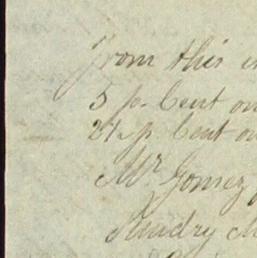 From this
5 p. Cent on
2½ p Cent on
Mr Gomez
Sundry